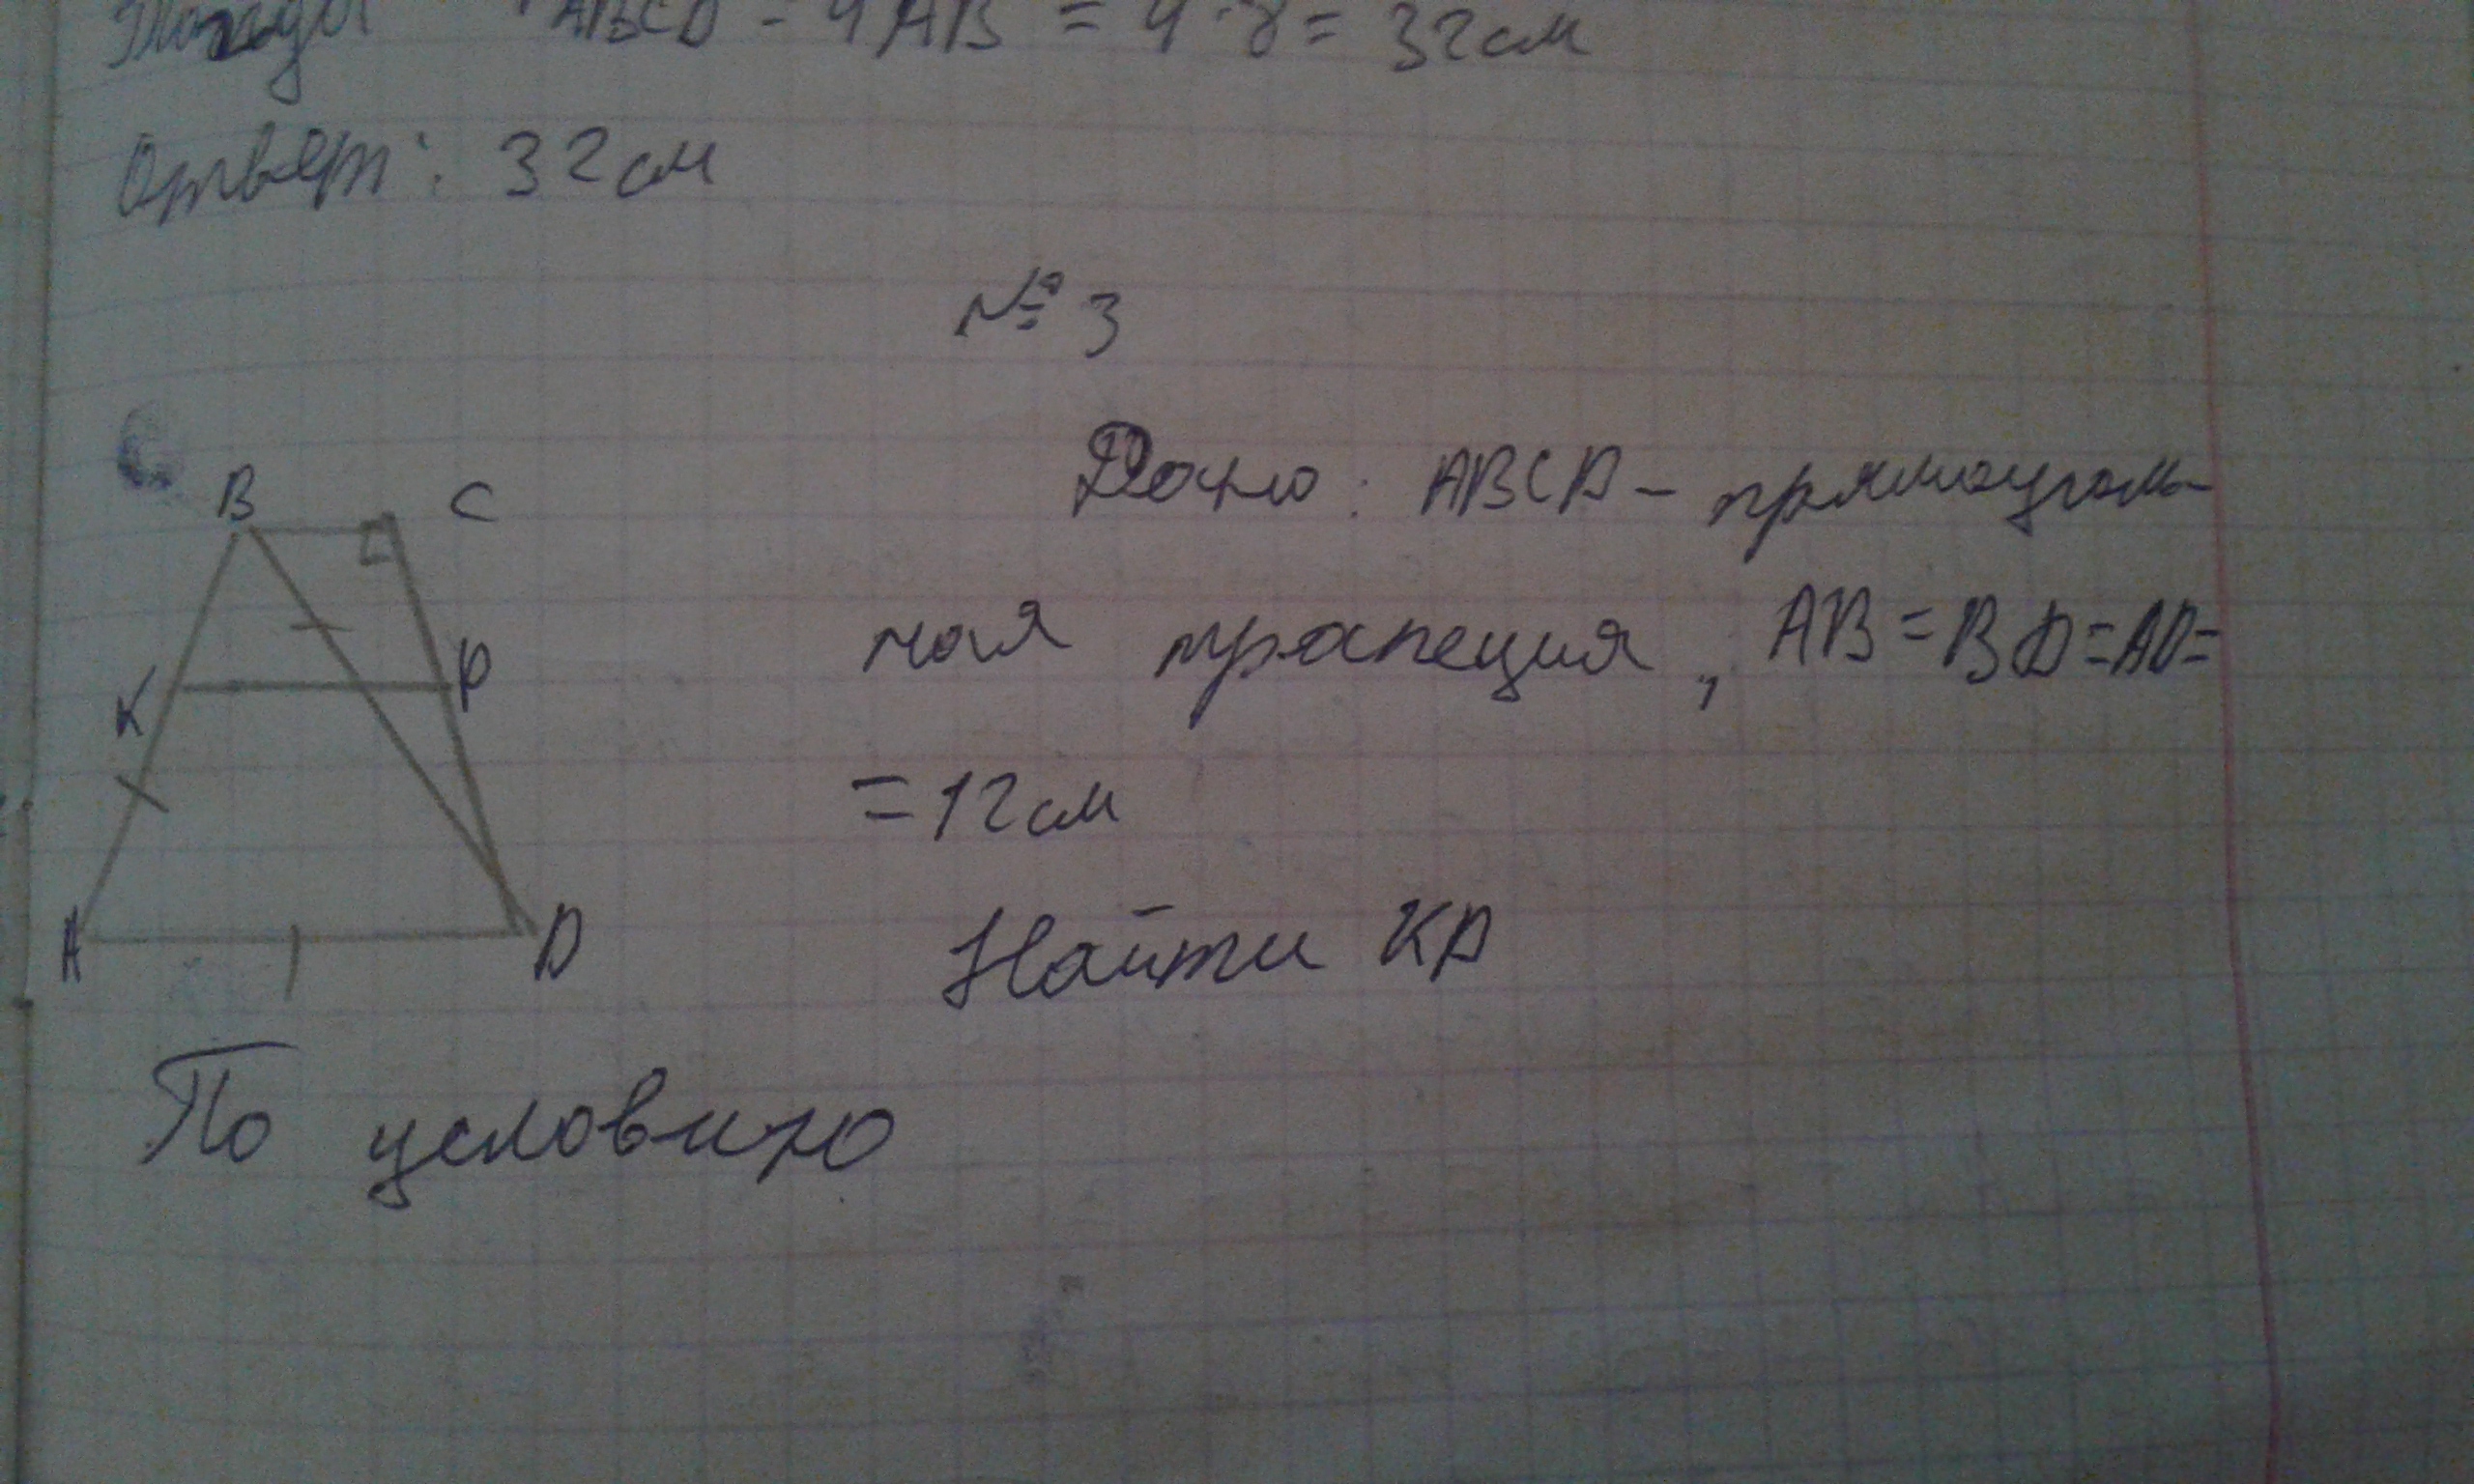 ABCD = 4AB = 4·8 = 32см
Ответ: 32см
№ 3
B
C
Дано: ABCD - прямоуголь-
K
P
ная трапеция, AB = BD = AD =
= 12см
A
D
Найти KP
По условию